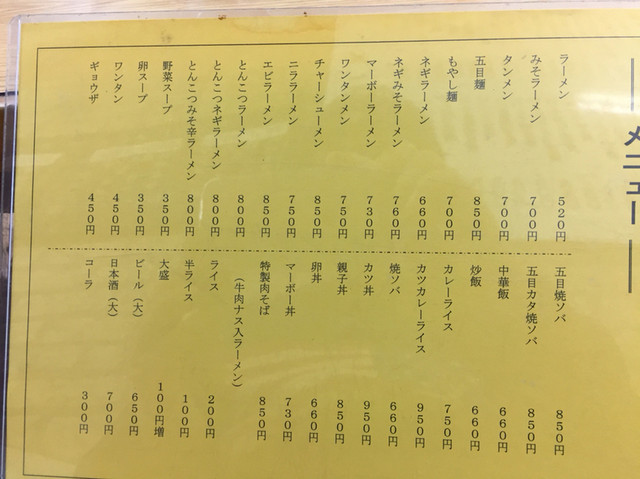 メニュー
ラーメン 520円
みそラーメン 700円
タンメン 700円
五目麺 850円
もやし麺 700円
ネギラーメン 660円
ネギみそラーメン 760円
マーボーラーメン 730円
ワンタンメン 750円
チャーシューメン 850円
ニララーメン 750円
エビラーメン 850円
とんこつラーメン 800円
とんこつネギラーメン 800円
とんこつみそ辛ラーメン 800円
野菜スープ 350円
卵スープ 350円
ワンタン 450円
ギョウザ 450円
五目焼ソバ 850円
五目カタ焼ソバ 850円
中華飯 660円
炒飯 660円
カレーライス 750円
カツカレーライス 950円
焼ソバ 660円
カツ丼 950円
親子丼 850円
卵丼 660円
マーボー丼 730円
特製肉そば 850円
(牛肉ナス入ラーメン)
ライス 200円
半ライス 100円
大盛 100円増
ビール(大) 650円
日本酒(大) 700円
コーラ 300円